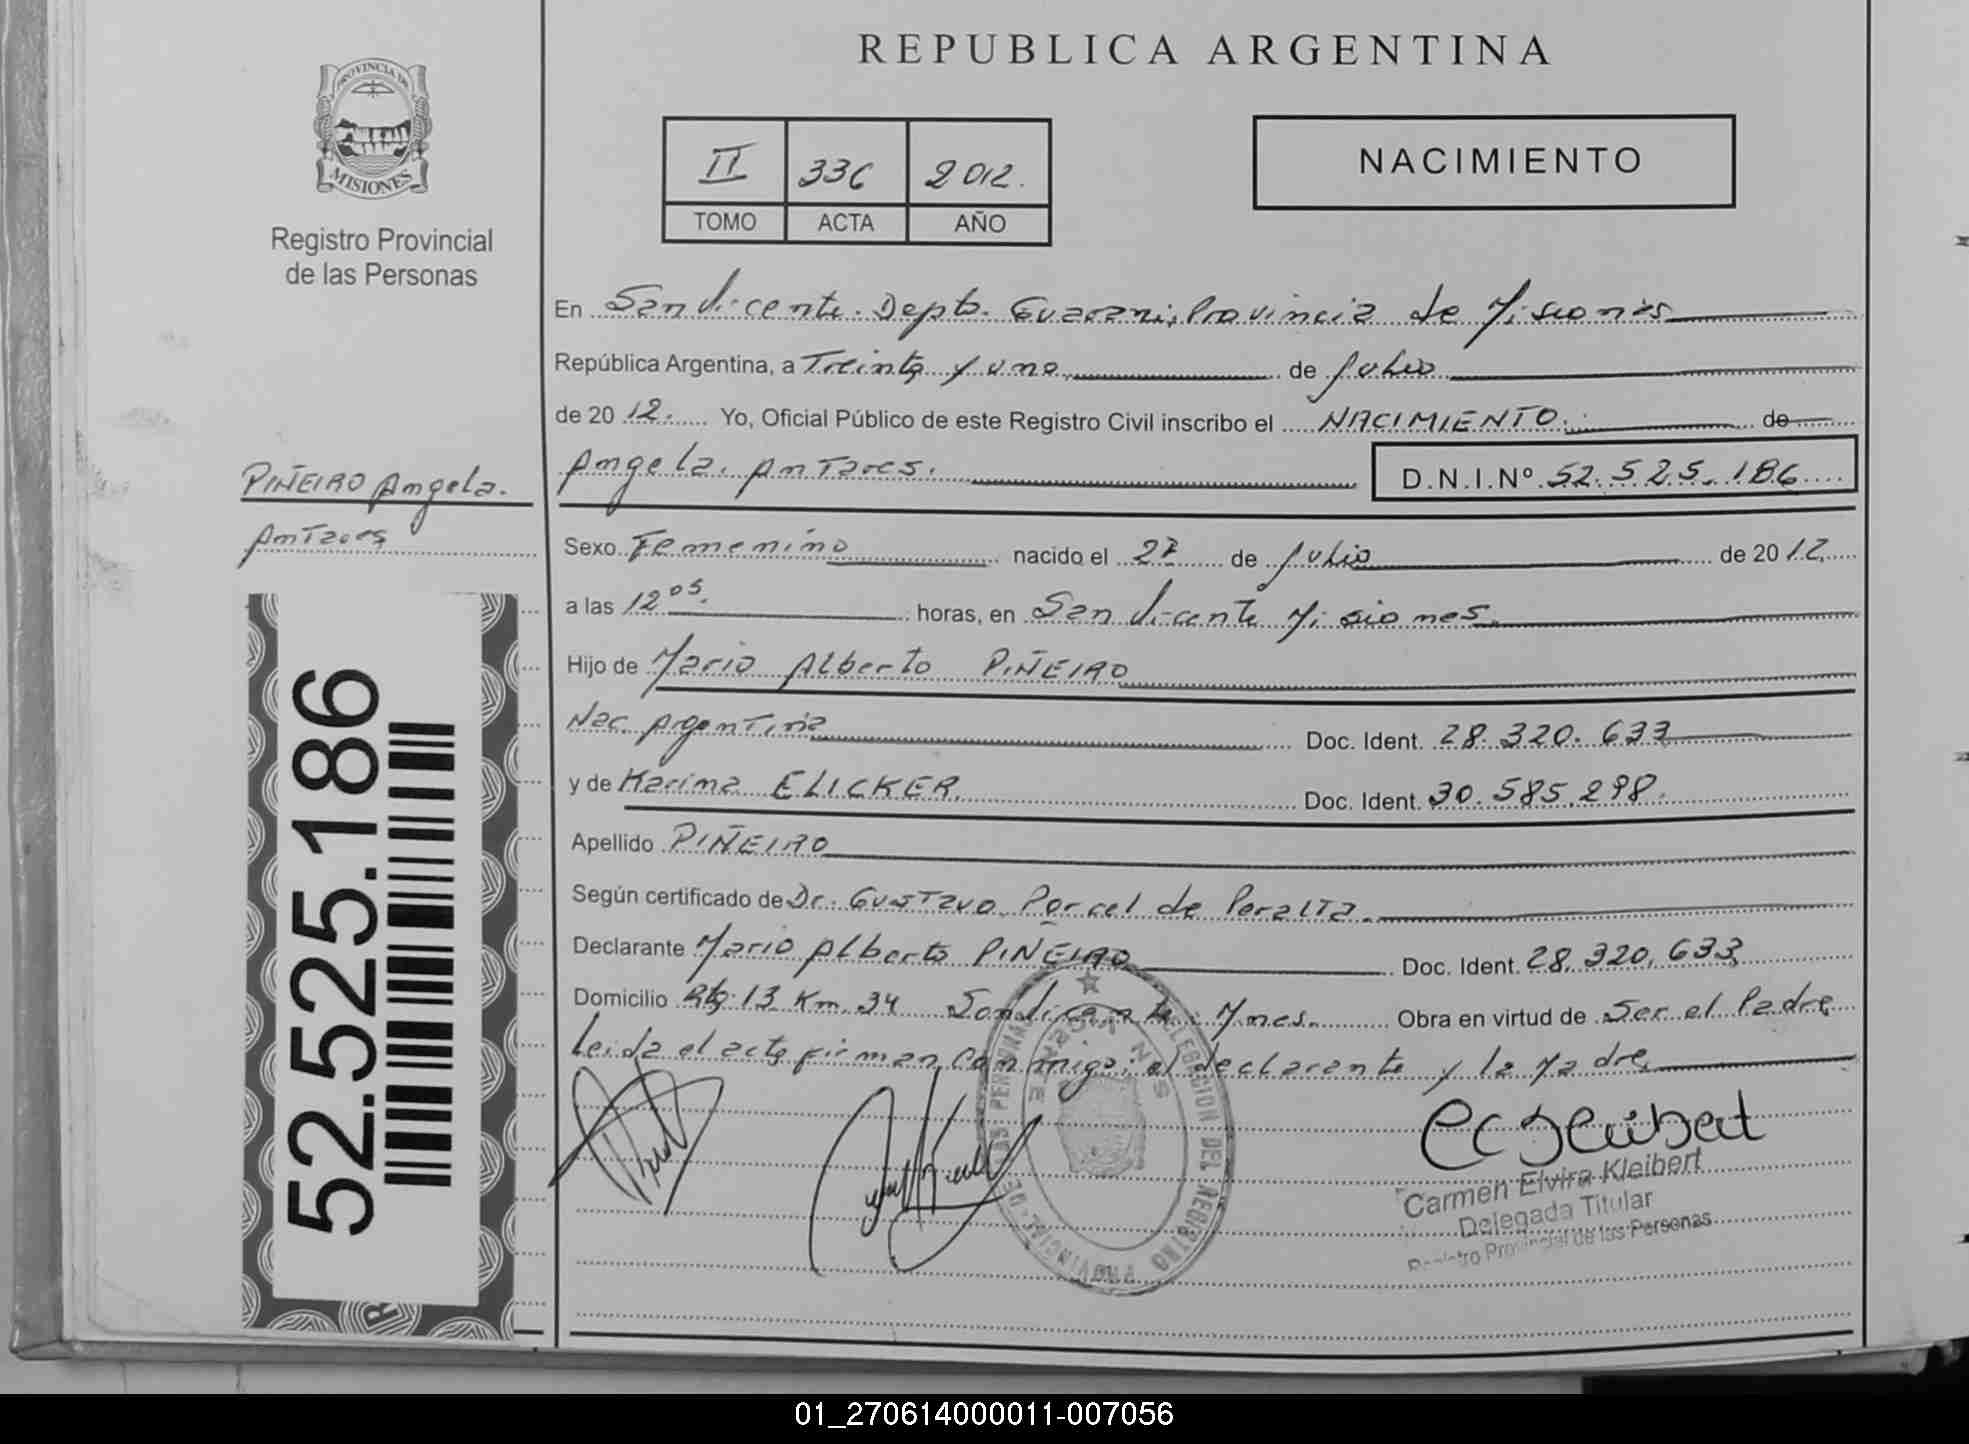 REPUBLICA ARGENTINA
PROVINCIA DE
MISIONES
Registro Provincial
de las Personas
II 336 2012.
TOMO ACTA AÑO
NACIMIENTO
En San Vicente. Depto. Guarani, Provincia de Misiones
República Argentina, a Treinta y uno de Julio
de 20 12. Yo, Oficial Público de este Registro Civil inscribo el NACIMIENTO. de
Angela. Antares. D.N.I.Nº 52.525.186
PIÑEIRO Angela.
Antares
Sexo Femenino nacido el 27 de Julio de 20 12.
a las 12 05. horas, en San Vicente Misiones.
Hijo de Mario Alberto PIÑEIRO
Nac. Argentina Doc. Ident. 28.320.633
y de Karina ELICKER. Doc. Ident. 30.585.298.
Apellido PIÑEIRO
Según certificado de Dr. Gustavo Porcel de Peralta.
Declarante Mario Alberto PIÑEIRO Doc. Ident. 28.320.633
Domicilio Rta. 13 Km. 34 San Vicente. Mnes. Obra en virtud de Ser el Padre
Leida el acta firman conmigo: el declarante y la Madre.
52.525.186
DELEGACION DEL REGISTRO PROVINCIAL DE LAS PERSONAS
Carmen Elvira Kleibert
Delegada Titular
Registro Provincial de las Personas
01_270614000011-007056